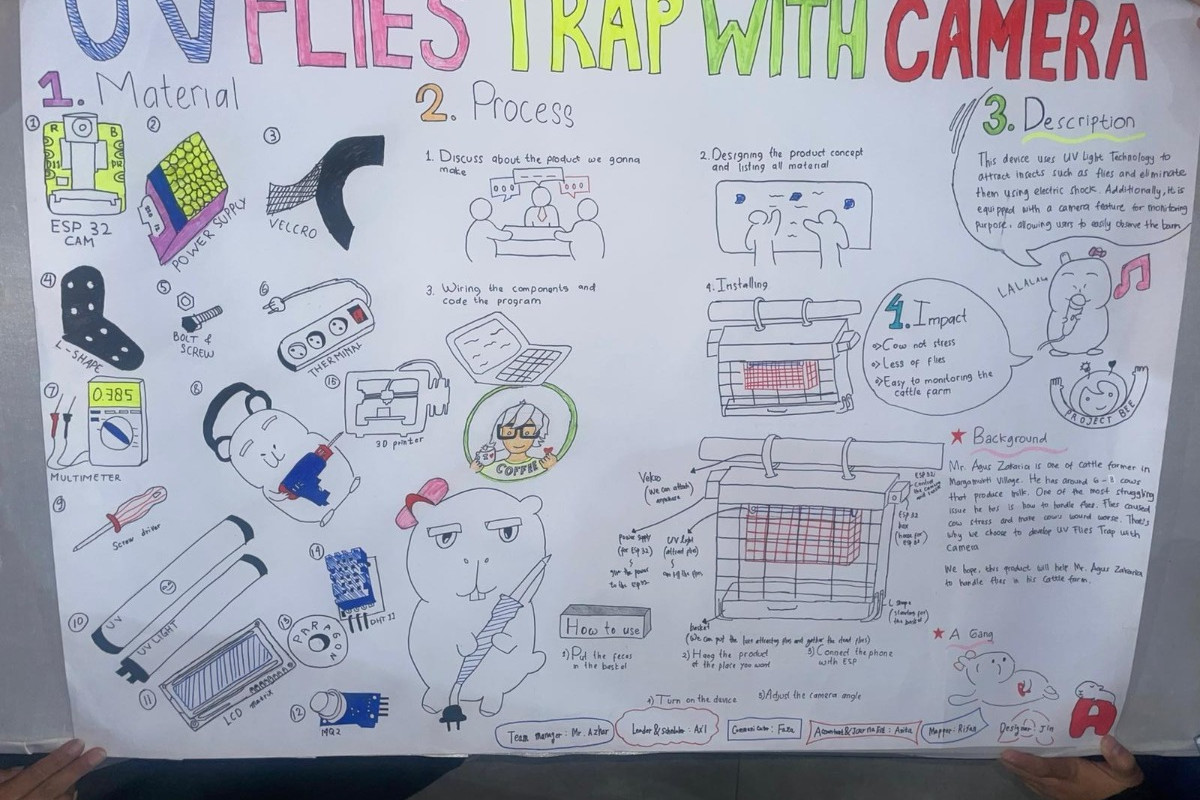 UV FLIES TRAP WITH CAMERA
1. Material
1
R B
ESP 32
CAM
2
POWER SUPPLY
3
VELCRO
4
L-SHAPE
5
BOLT &
SCREW
6
THERMINAL
7
0.385
MULTIMETER
8
15
3D printer
9
Screw driver
10
UV
UV LIGHT
11
LCD Matrix
12
MQ2
13
PARAGON
14
DHT 22
2. Process
1. Discuss about the product we gonna
make
2. Designing the product concept
and listing all material
3. Wiring the components and
code the program
4. Installing
COFFEE
Velcro
(We can attach
anywhere
power supply
(for Esp 32)
to the esp32
UV light
ESP 32
L shape
basket
(We can put the
How to use
1) Put the feces
in the basket
2) Hang the product
at the place you want
3) Connect the phone
with ESP
4) Turn on the device
5) Adjust the camera angle
3. Description
This device uses UV Light Technology to
attract insects such as flies and eliminate
them using electric shock. Additionally, it is
equipped with a camera feature for monitoring
purpose, allowing users to easily observe the barn
LALALALA
4. Impact
Cow not stress
Less of flies
Easy to monitoring the
cattle farm
PROJECT BEE
Background
Mr. Agus Zakaria is one of cattle farmer in
Margamukti Village. He has around 6-8 cows
that produce milk. One of the most struggling
issue he has is how to handle flies. Flies caused
cow stress and make cows wound worse. That's
why we choose to develop UV Flies Trap with
Camera
We hope, this product will help Mr. Agus Zakaria
to handle flies in his cattle farm.
A Gang
Team manager: Mr. Azhar
Leader & Scheduler: Axl
Faza
Anika
Mapper: Rifan
Designer: Jin
A